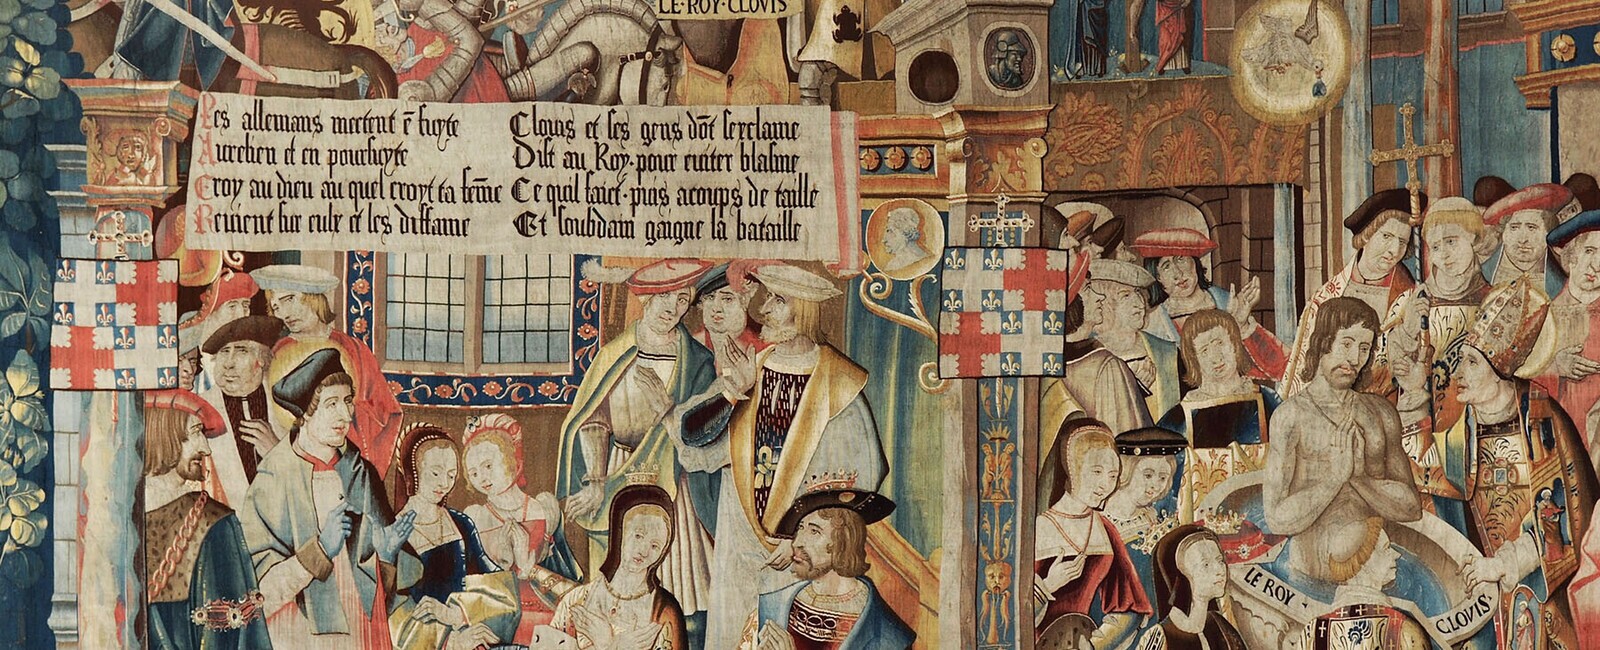 LE·ROY·CLOVIS
Les allemans mectent ē fuyte
Aurelien et en pourſuyte
Croy au dieu au quel croyt ta fēme
Reuient ſur eulx et les diffame
Clouis et ſes gens dōt ſexclame
Diſt au Roy·pour euiter blaſme
Ce quil faict·puis acoups de taille
Et ſoubdain gaigne la bataille
LE ROY·
CLOVIS·